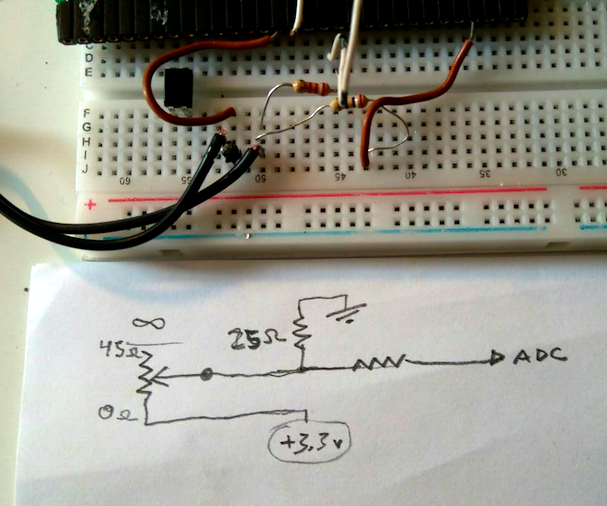 C
D
E
F
G
H
I
J
60
55
50
45
40
35
30
+
∞
45Ω
25Ω
ADC
0Ω
+3.3v